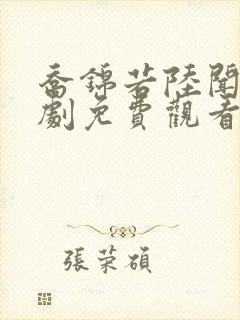 喬錦若陸聞
劇免費觀看
張榮碩